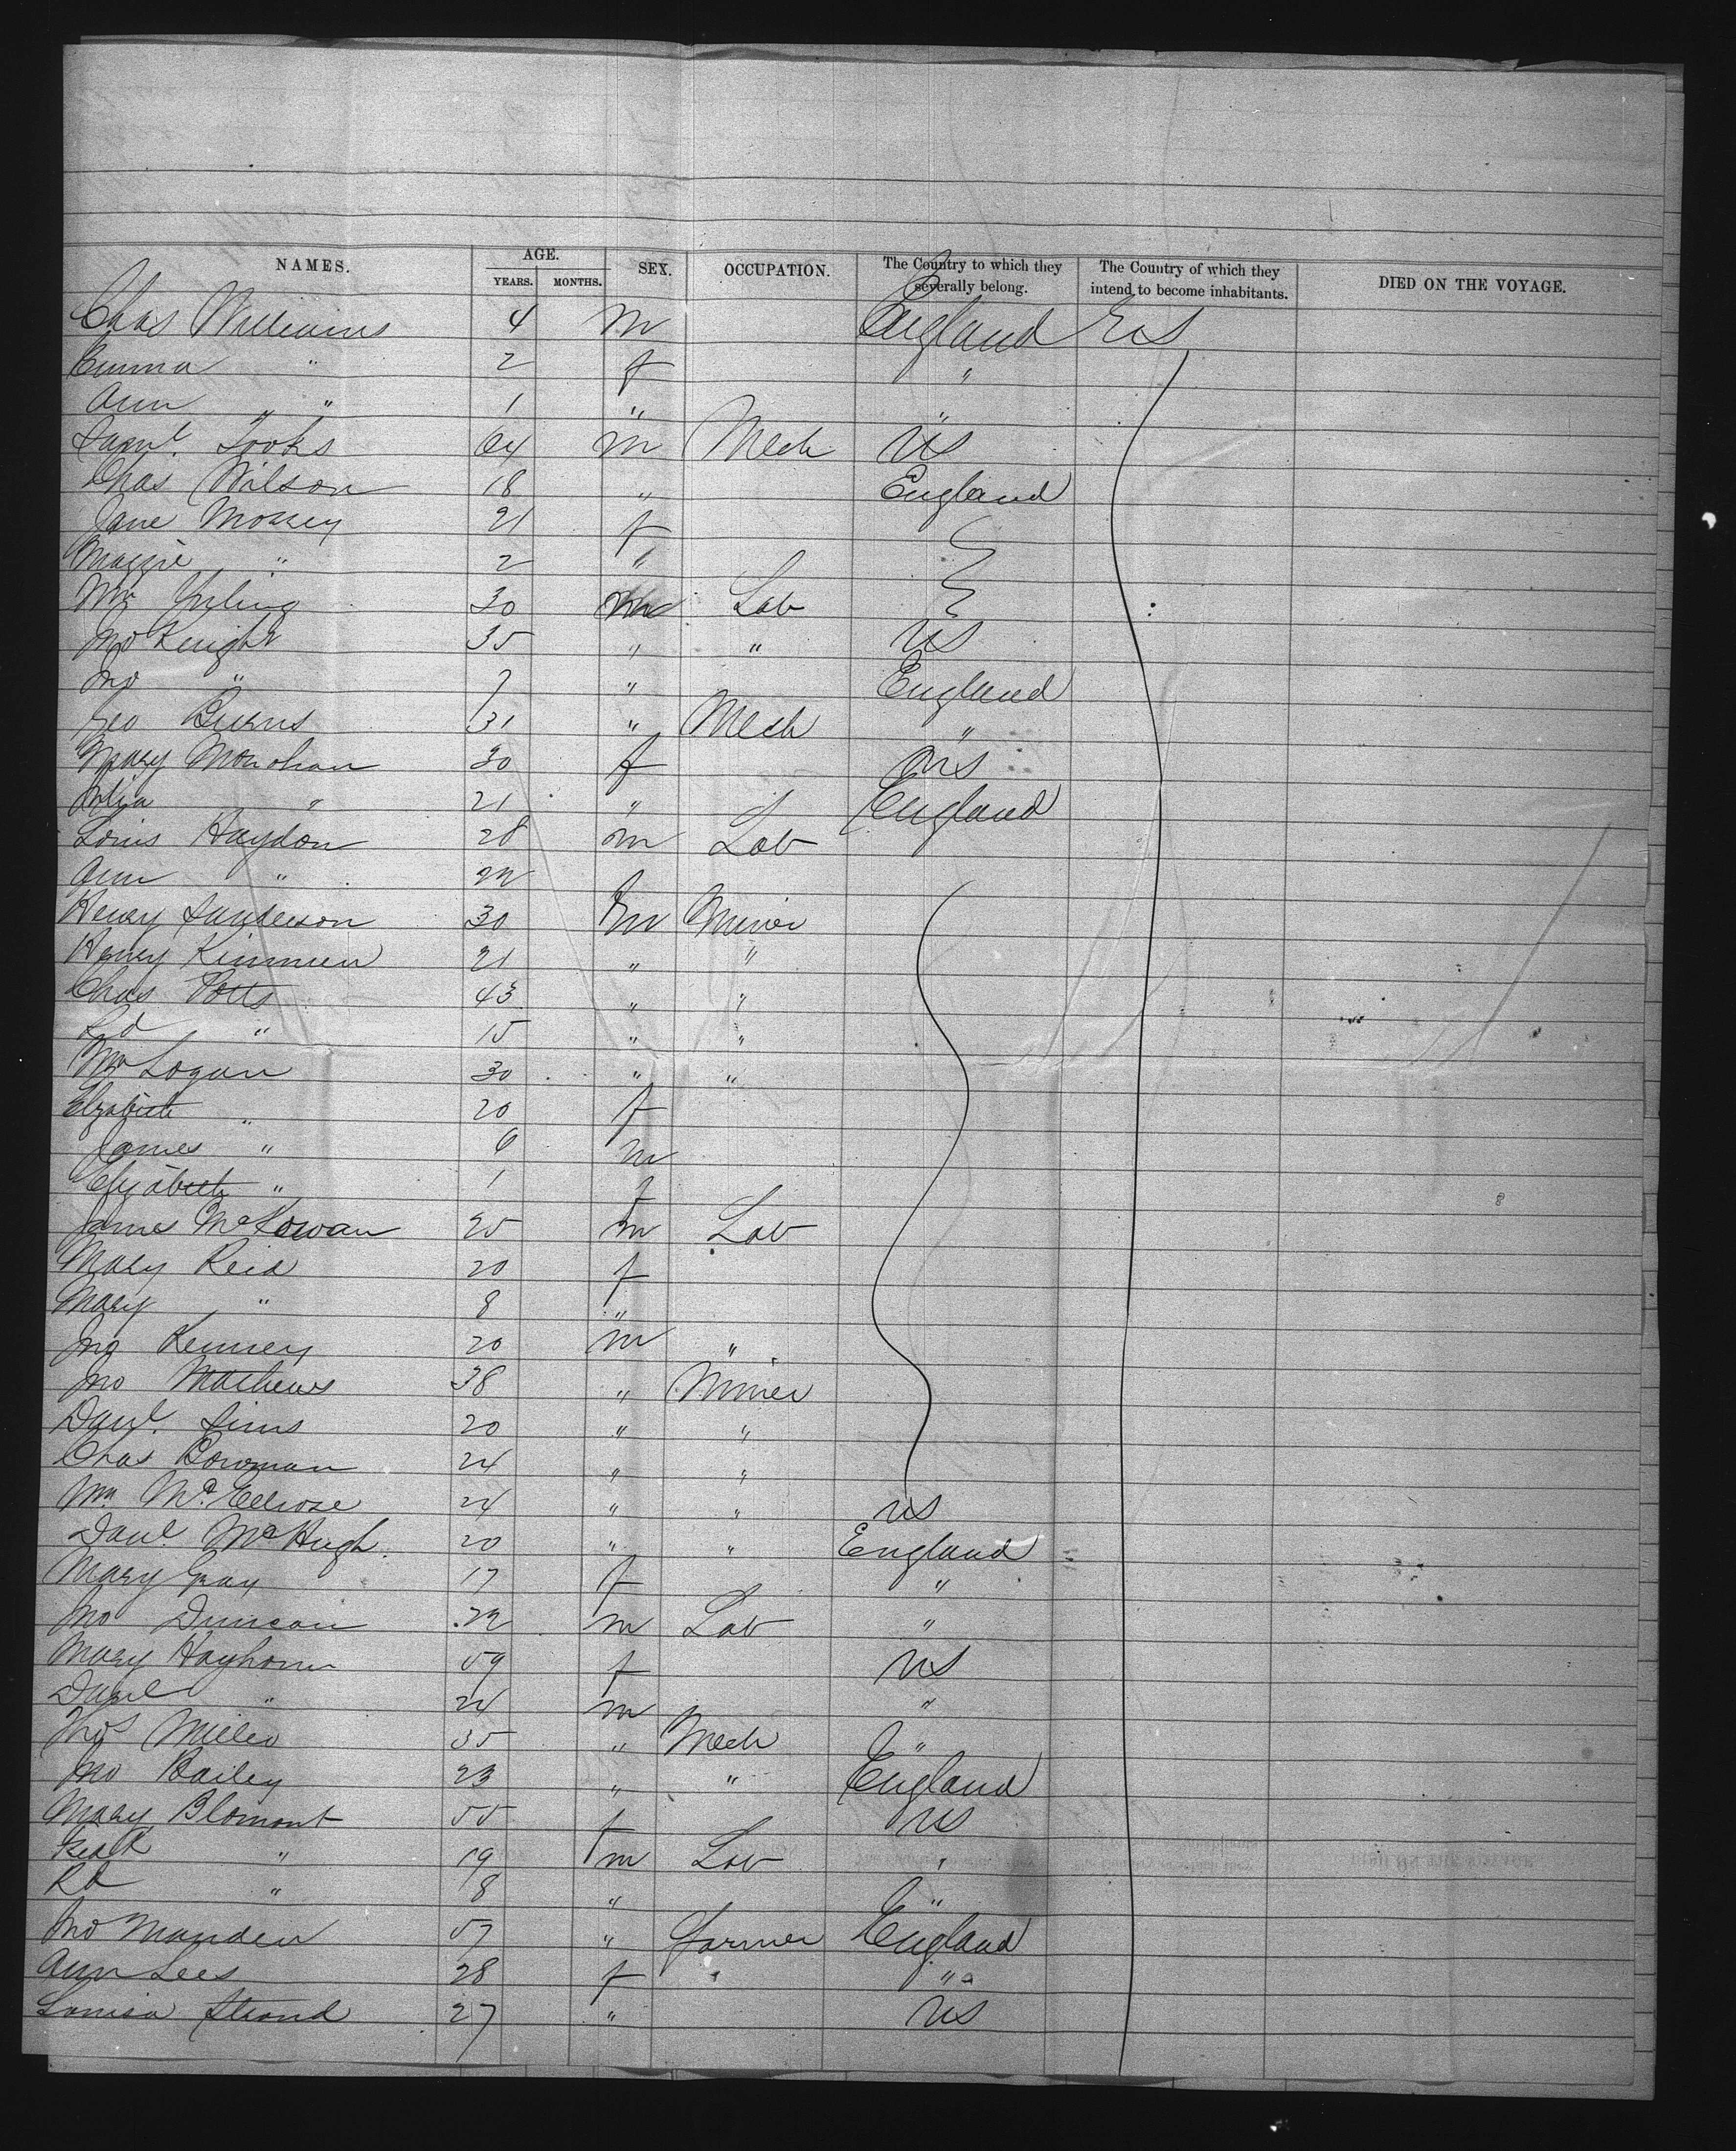 NAMES. AGE. SEX. OCCUPATION. The Country to which they severally belong. The Country of which they intend to become inhabitants. DIED ON THE VOYAGE.
YEARS. MONTHS.
Chas Williams 4 m England US
Emma " 2 f "
Ann " " 1 " "
Saml. Tooks 64 m Mech US
Chas Wilson 18 " England
Jane Mossey 21 f
Maggie " 2 "
Wm 30 m Lab
Jno Knight 35 " " US
Jno " 7 " England
Geo Burns 31 " Mech "
Mary Monohan 30 f US
Julia " 21 " England
Louis Haydon 28 m Lab
Ann " 22
Henry Sanderson 30 m Miner
Henry Kinmen 21 " "
Chas Potts 43 " "
Ed " 15 " "
Wm Logan 30 " "
Elizabeth " 20 f
James " 6 m
Elizabeth " 1 f
James McKowan 25 m Lab
Mary Reid 20 f
Mary " 8 "
Jno Kenney 20 m "
Jno Mathews 38 " Miner
Danl. Sims 20 " "
Chas Bowman 24 " "
Wm McEllrose 24 " " US
Danl. McHugh. 20 " " England
Mary Gray 17 f "
Jno Duncan 22 m Lab "
Mary Hayhorn 59 f US
Danl " 24 m "
Thos Miller 35 " Mech "
Jno Bailey 23 " " England
Mary Blomont 55 f US
" 19 m Lab "
Rd " 8 " "
Jno Manden 57 " Farmer England
Ann Lees 28 f "
Louisa Strond 27 " US